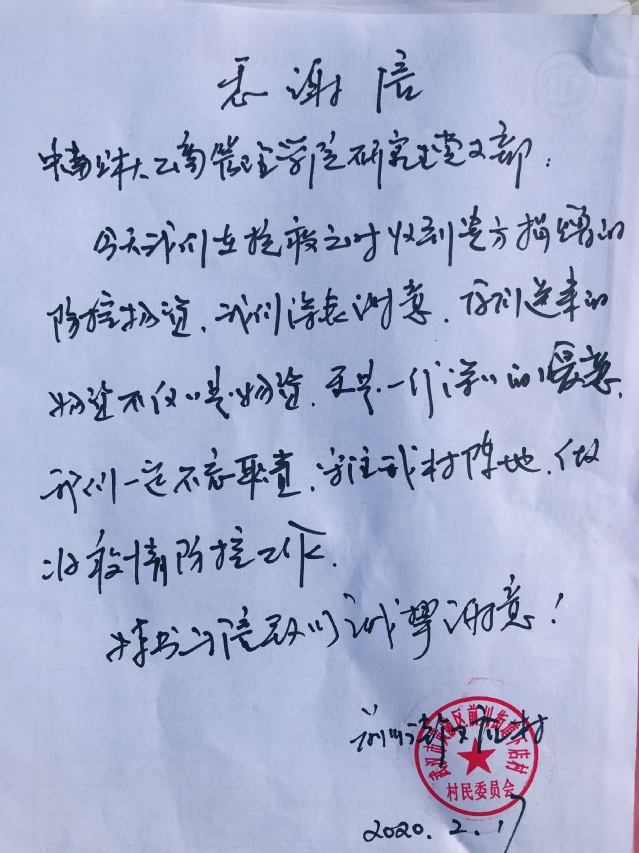 感谢信
中南财大工商管理学院研究生党支部：
今天我们在抗疫之时收到贵方捐赠的
防控物资，我们深表谢意，你们送来的
物资不仅仅是物资，更是一份深深的暖意，
我们一定不忘职责，守住我村阵地，做
好疫情防控工作。
特书此信致以诚挚谢意！
前川街
村
村民委员会
2020.2.17